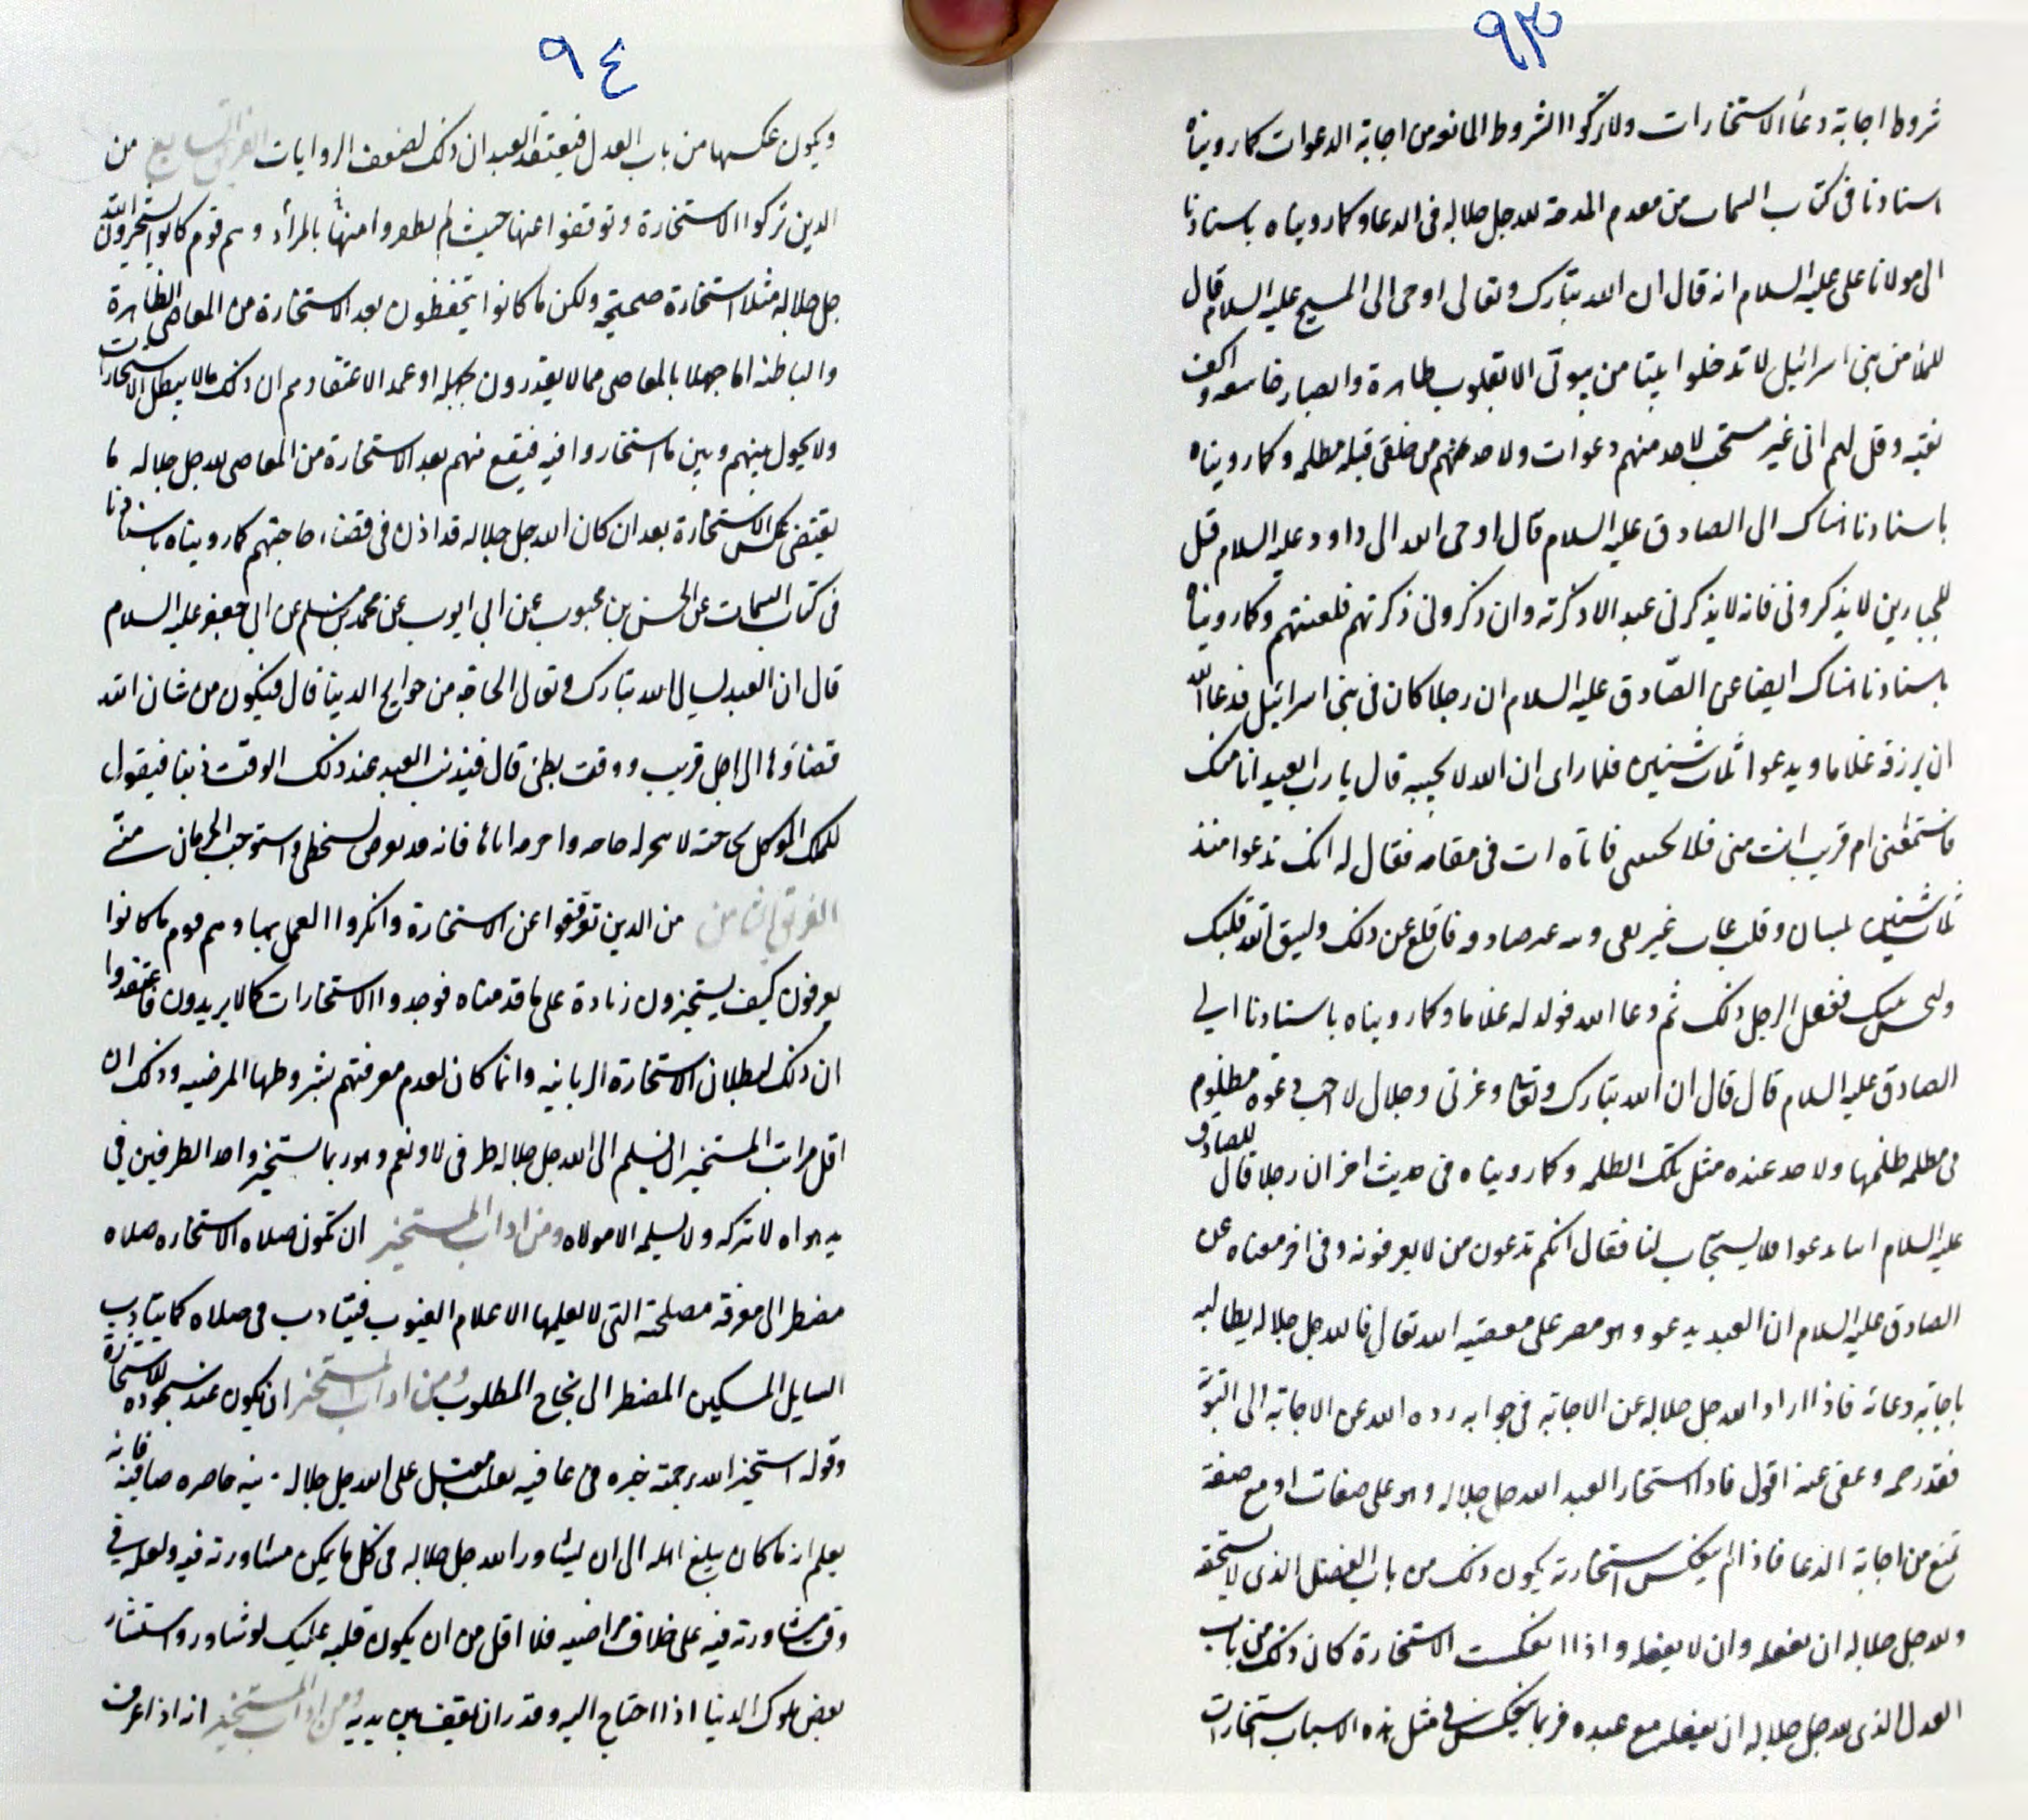 ٩٣
شروط اجابة دعاء الاستخارات ولا تركوا الشروط المانعة من اجابة الدعوات كما رويناه
اسنادنا فى كتاب من مقدم المدحة لله جل جلاله فى الدعا وكما رويناه باسنادنا
الى مولانا على عليه السلام انه قال ان الله تبارك وتعالى اوحى الى المسيح عليه السلام قال
للملا من بنى اسرائيل لا تدخلوا بيتا من بيوتى الا بقلوب طاهرة وابصار خاشعه واكف
نقيه وقل لهم انى غير مستجيب لاحد منهم دعوات ولاحد من خلقى قبله مظلمه وكما رويناه
باسنادنا هناك الى الصادق عليه السلام قال اوحى الله الى داود عليه السلام قل
للجبارين لا يذكرونى فانه لا يذكرنى عبد الا ذكرته وان ذكرونى ذكرتهم فلعنتهم وكما رويناه
باسنادنا هناك ايضا عن الصّادق عليه السلام ان رجلا كان فى بنى اسرائيل فدعا الله
ان يرزقه غلاما ويدعوا ثلاث سنين فلما راى ان الله لا يجيبه قال يا رب ابعيد انا منك
ام قريب انت منى فلا تجيبنى فاتاه ات فى منامه فقال له انك تدعوا منذ
ثلاث سنين بلسان وقلب غير نقى ونيه غير صادقه فاقلع عن ذلك وليتق الله قلبك
ولتحسن نيتك ففعل الرجل ذلك ثم دعا الله فولد له غلاما وكما رويناه باسنادنا الى
الصادق عليه السلام قال قال ان الله تبارك وتعالى وعزتى وجلالى لا اجيب دعوة مظلوم
فى مظلمه ظلمها ولاحد عنده مثل تلك الظلمه وكما رويناه فى حديث اخر ان رجلا قال للصادق
عليه السلام اننا ندعوا فلا يستجاب لنا فقال انكم تدعون من لا تعرفونه وفى اخر معناه عن
الصادق عليه السلام ان العبد يدعو وهو مصر على معصية الله تعالى فالله جل جلاله يطالبه
باجابة دعائه فاذا اراد الله جل جلاله عن الاجابة فى جوابه رده الله عن الاجابة الى التوبة
فقد رحمه وعفى عنه اقول فاذا استخار العبد الله جل جلاله وهو على صفات او مع صفة
تمنع من اجابة الدعا فاذا لم ينعكس استخارته يكون ذلك من باب الفضل الذى لا يستحقه
ولله جل جلاله ان يفعله وان لا يفعله واذا انعكست الاستخارة كان ذلك من باب
العدل الذى لله جل جلاله ان يفعله مع عبده فربما ينعكس فى مثل هذه الاسباب استخارات
٩٤
ويكون عكسها من باب العدل فيعتقد العبد ان ذلك لضعف الروايات الفريق السابع من
الذين تركوا الاستخارة وتوقفوا عنها حيث لم يظفروا منها بالمراد وهم قوم كانوا يستخيرون الله
جل جلاله مثلا استخارة صحيحة ولكن ما كانوا يتحفظون بعد الاستخارة من المعاصى الظاهرة
والباطنه اما جهلا بالمعاصى مما لا يعذرون بجهله او عمدا لاعتقادهم ان ذلك مما لا يبطل الاستخارات
ولا يحول بينهم وبين ما استخاروا فيه فيقع منهم بعد الاستخارة من المعاصى لله جل جلاله ما
يقتضى عكس الاستخارة بعد ان كان الله جل جلاله قد اذن فى قضاء حاجتهم كما رويناه باسنادنا
فى كتاب عن الحسن بن محبوب عن ابى ايوب عن محمد بن مسلم عن ابى جعفر عليه السلام
قال ان العبد ليسال الله تبارك وتعالى الحاجة من حوايج الدنيا قال فيكون من شان الله
قضاؤها الى اجل قريب ووقت بطئ قال فيذنب العبد عند ذلك الوقت ذنبا فيقول
للملك الموكل بحاجته لا تنجز له حاجته واحرمه اياها فانه قد تعرض لسخطى واستوجب الحرمان منى
الفريق الثامن من الذين توقفوا عن الاستخارة وانكروا العمل بها وهم قوم ما كانوا
يعرفون كيف يستخيرون زيادة على ما قدمناه فوجدوا الاستخارات كما لا يريدون فاعتقدوا
ان ذلك لبطلان الاستخارة الربانيه وانما كان لعدم معرفتهم بشروطها المرضيه وذلك ان
اقل مراتب المستخير ان يسلم الى الله جل جلاله طرفى لا ونعم وهو ربما يستخير واحد الطرفين فى
يد هواه لا تركه ولا يسلمه الا مولاه ومن اداب المستخير ان تكون صلاه الاستخاره صلاه
مضطر الى معرفة مصلحته التى لا يعلمها الا علام الغيوب فيتادب فى صلاه كما يتادب
السايل المسكين المضطر الى نجاح المطلوب ومن اداب المستخير ان يكون عند سجوده للاستخارة
وقوله استخير الله برحمته خيره فى عافيه بقلب مقبل على الله جل جلاله ونيه حاضره صافيه فانه
يعلم انه ما كان يبلغ امله الى ان يشاور الله جل جلاله فى كل ما يمكن مشاورته فيه ولعله فى
وقت مشاورته فيه على خلاف مراضيه فلا اقل من ان يكون قلبه عليك لو شاور واستشار
بعض ملوك الدنيا اذا احتاج اليه وقدر ان يقف بين يديه ومن اداب المستخير انه اذا عرف